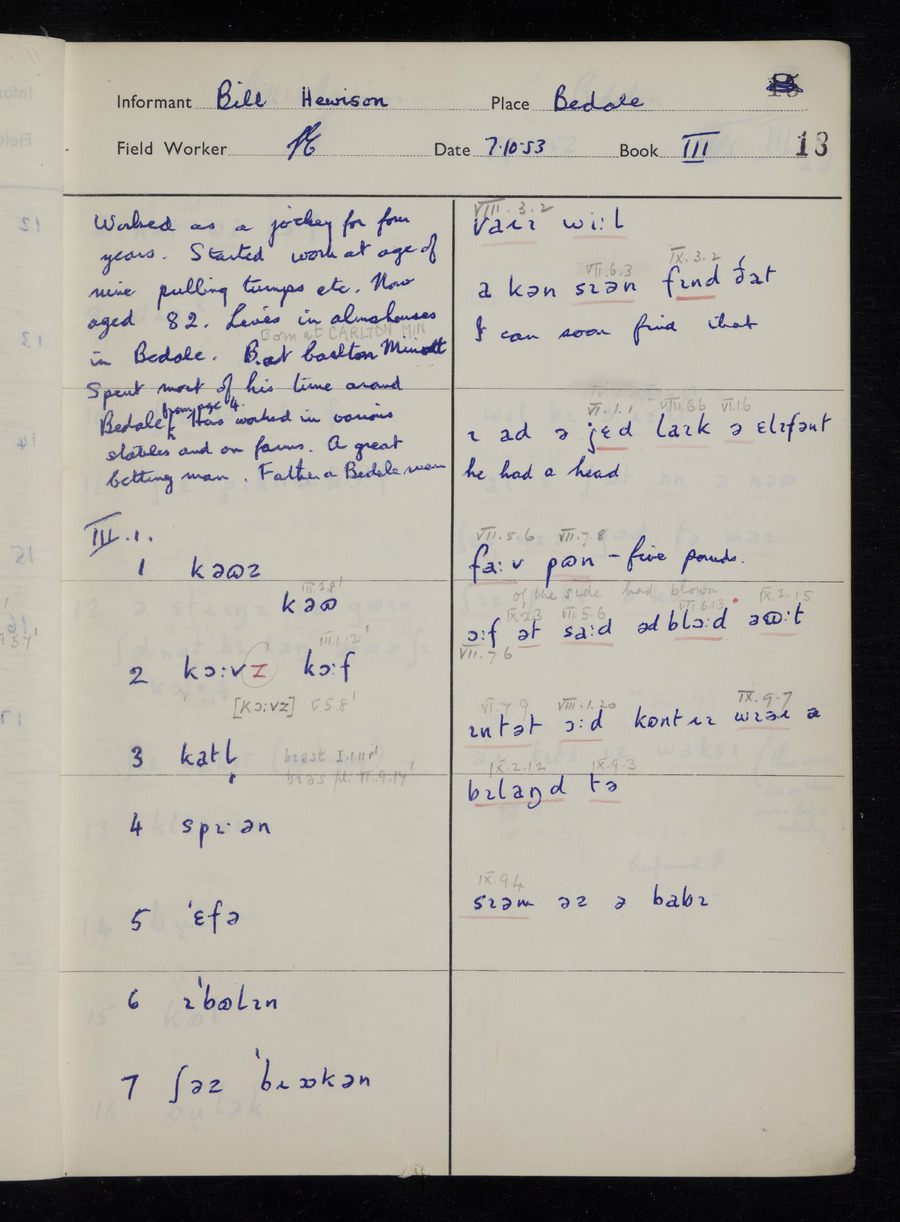 Informant Bill Hewison Place Bedale
Field Worker Date 7.10.53 Book III 13
Worked as a jockey for four
years. Started work at age of
nine pulling turnips etc. Now
aged 82. Lives in almshouses
Born at CARLTON MIN
in Bedale. B. at Carlton Miniott
Spent most of his time around
from age 4.
Bedale. Has worked in various
stables and on farms. A great
betting man. Father a Bedale man
III.1.
1 kəɷz
III.2.8'
kəɷ
III.1.12'
2 kɔ:vz kɔ:f
[Kɔ:vz] V 5.8'
3 katl̩
4 spɪ·ən
5 'ɛfə
6 ɪ'bɷlɪn
7 ʃəz 'bɪɒkən
VIII.3.2
vaɪɪ wi:l
VII.6.3 IX.3.2
a kən sɪən fɪnd ðat
I can soon find that
VI.1.1 VIII.8.6 VI.16
ɪ ad ə jɛd laɪk ə ɛlɪfənt
he had a head
VII.5.6 VII.7.8
fa:v pɷn - five pounds.
of the side had blown
IX.2.3 VII.5.6 VII.6.13 IX.2.15
ɔ:f ət sa:d əd blɔ:d əɷ:t
VII.7.6
VI.7.9 VIII.1.20 IX.9.7
ɪntət ɔ:d kɒntɪɪ wɪəɪ ə
IX.2.12 IX.9.3
bɪlaŋd tə
IX.9.4
sɪəm əz ə babɪ